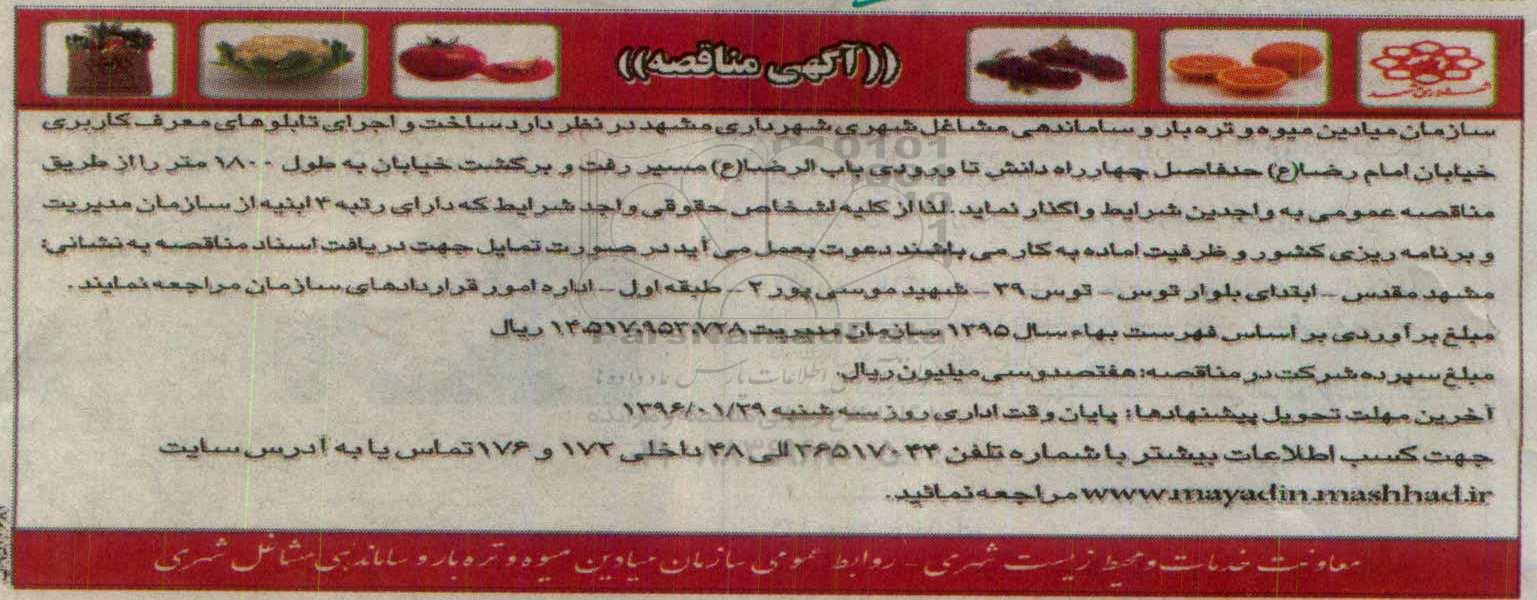 ((آگهی مناقصه))
سازمان میادین میوه و تره بار و ساماندهی مشاغل شهری شهرداری مشهد در نظر دارد ساخت و اجرای تابلوهای معرف کاربری
خیابان امام رضا(ع) حدفاصل چهارراه دانش تا ورودی باب الرضا(ع) مسیر رفت و برگشت خیابان به طول ۱۸۰۰ متر را از طریق
مناقصه عمومی به واجدین شرایط واگذار نماید. لذا از کلیه اشخاص حقوقی واجد شرایط که دارای رتبه ۴ ابنیه از سازمان مدیریت
و برنامه ریزی کشور و ظرفیت اماده به کار می باشند دعوت بعمل می آید در صورت تمایل جهت دریافت اسناد مناقصه به نشانی:
مشهد مقدس - ابتدای بلوار توس - توس ۳۹ - شهید موسی پور ۲ - طبقه اول - اداره امور قراردادهای سازمان مراجعه نمایند.
مبلغ برآوردی بر اساس فهرست بهاء سال ۱۳۹۵ سازمان مدیریت ۱۴،۵۱۷،۹۵۳،۷۲۸ ریال
مبلغ سپرده شرکت در مناقصه: هفتصدوسی میلیون ریال.
آخرین مهلت تحویل پیشنهادها: پایان وقت اداری روز سه شنبه ۱۳۹۶/۰۱/۲۹
جهت کسب اطلاعات بیشتر با شماره تلفن ۳۶۵۱۷۰۴۴ الی ۴۸ داخلی ۱۷۲ و ۱۷۶ تماس یا به آدرس سایت
www.mayadin.mashhad.ir مراجعه نمائید.
معاونت خدمات و محیط زیست شهری - روابط عمومی سازمان میادین میوه و تره بار و ساماندهی مشاغل شهری
ParsNamadData